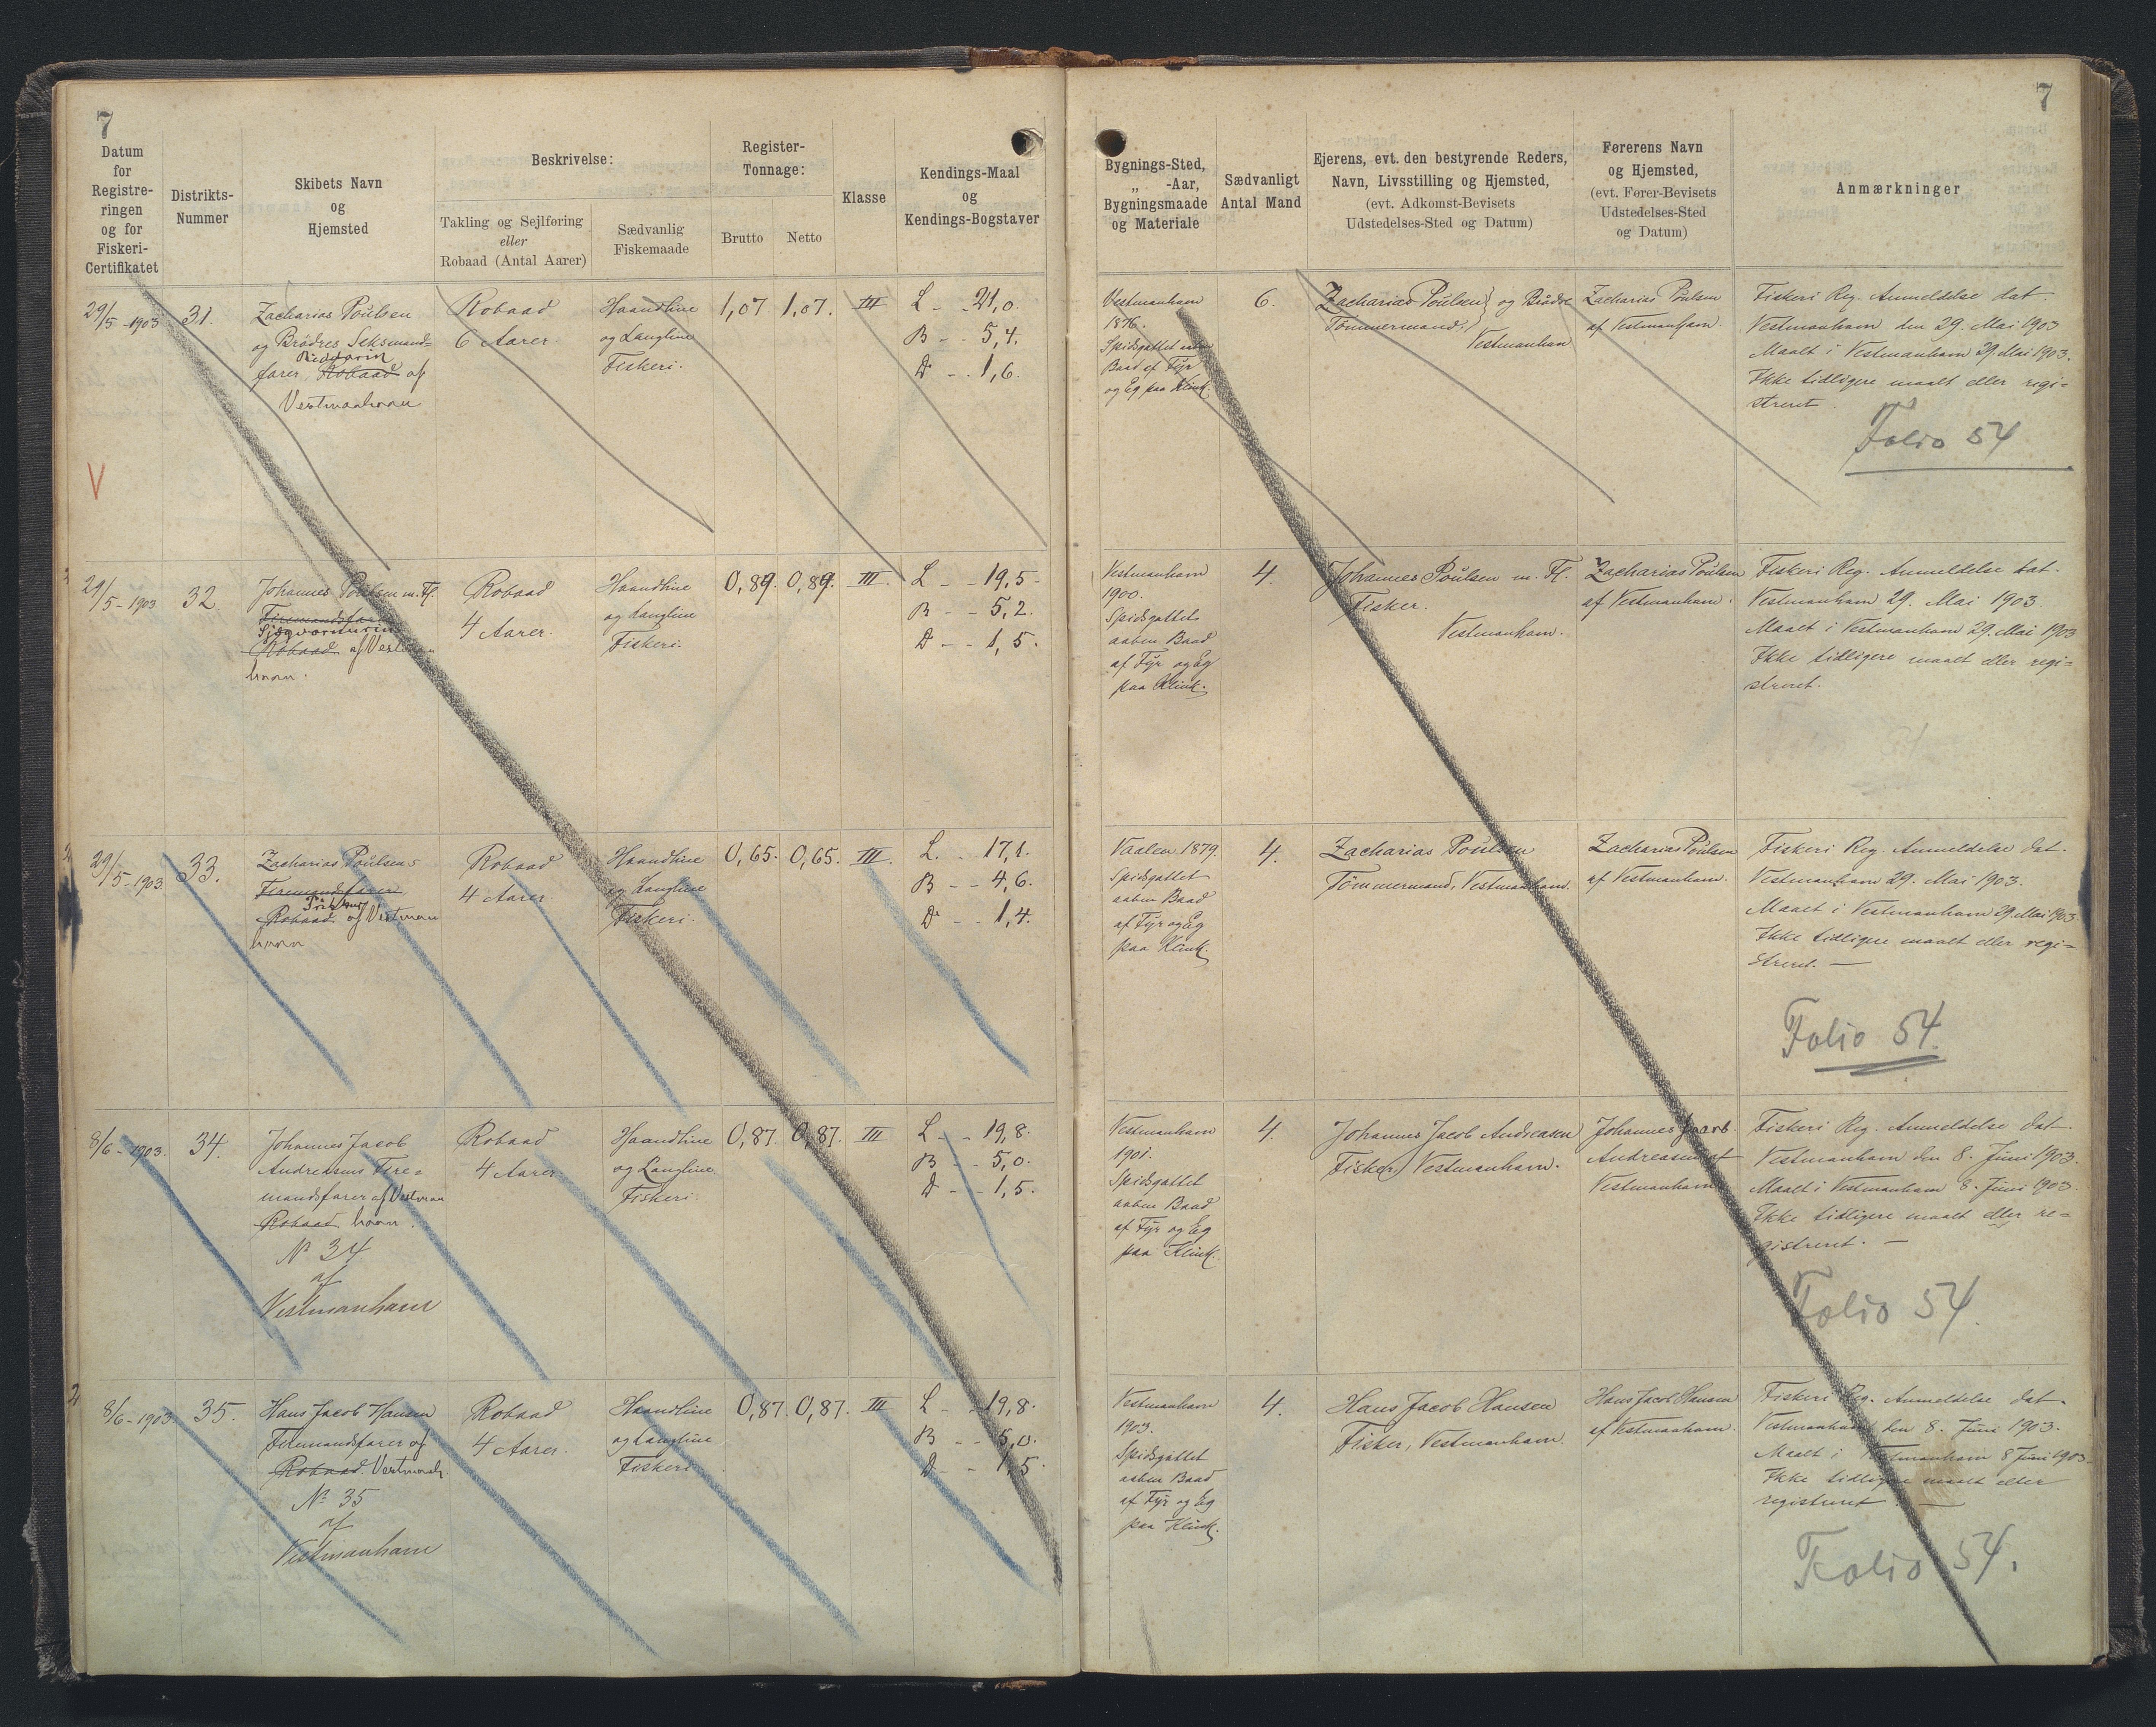 7
7
Datum
for
Registre-
ringen
og for
Fiskeri-
Certifikatet
Distrikts-
Nummer
Skibets Navn
og
Hjemsted
Beskrivelse:
Takling og Sejlføring
eller
Robaad (Antal Aarer)
Sædvanlig
Fiskemaade
Register-
Tonnage:
Brutto
Netto
Klasse
Kendings-Maal
og
Kendings-Bogstaver
Bygnings-Sted,
„ -Aar,
Bygningsmaade
og Materiale
Sædvanligt
Antal Mand
Ejerens, evt. den bestyrende Reders,
Navn, Livsstilling og Hjemsted,
(evt. Adkomst-Bevisets
Udstedelses-Sted og Datum)
Førerens Navn
og Hjemsted,
(evt. Fører-Bevisets
Udstedelses-Sted
og Datum)
Anmærkninger
29/5-1903
31.
Zacharias Poulsen
og Brødres Seksmand=
farer Robaad af
Vestmanhavn
Robaad
6 Aarer
Haandline
og Langline
Fiskeri.
1,07
1,07.
III
L - 21,0.
B - 5,4.
D - 1,6.
Vestmanhavn
1876.
Spidsgattet aaben
Baad af Fyr
og Eg paa Klink.
6.
Zacharias Poulsen og Brødre
Tømmermand,
Vestmanhavn
Zacharias Poulsen
af Vestmanhavn.
Fiskeri Reg. Anmeldelse dat.
Vestmanhavn den 29. Mai 1903
Maalt i Vestmanhavn 29. Mai 1903.
Ikke tidligere maalt eller regi=
streret.
Folio 54
V
29/5-1903
32
Johannes Poulsen m. Fl.
Firemandsfarer
Robaad af Vestman
havn.
Robaad
4 Aarer.
Haandline
og Langline
Fiskeri.
0,89.
0,89.
III.
L - 19,5-
B - - 5,2.
D - - 1,5.
Vestmanhavn
1900.
Spidsgattet
aaben Baad
af Fyr og Eg
paa Klink.
4.
Johannes Poulsen m. Fl.
Fisker.
Vestmanhavn.
Zacharias Poulsen
af Vestmanhavn.
Fiskeri Reg. Anmeldelse dat.
Vestmanhavn 29. Mai 1903.
Maalt i Vestmanhavn 29. Mai 1903
Ikke tidligere maalt eller regi=
streret.
29/5-1903
33.
Zacharias Poulsens
Firemandsfarer
Robaad af Vestman
havn
Robaad
4 Aarer
Haandline
og Langline
Fiskeri.
0,65.
0,65.
III.
L. - 17,1.
B - - 4,6.
D - 1,4.
Vaalen 1879.
Spidsgattet
aaben Baad
af Fyr og Eg
paa Klink.
4.
Zacharias Poulsen
Tømmermand, Vestmanhavn.
Zacharias Poulsen
af Vestmanhavn.
Fiskeri Reg. Anmeldelse dat.
Vestmanhavn 29. Mai 1903.
Maalt i Vestmanhavn 29. Mai 1903
Ikke tidligere maalt eller regi=
streret. —
Folio 54.
8/6-1903.
34.
Johannes Jacob
Andreasens Fire=
mandsfarer af Vestman
Robaad havn.
№ 34
af
Vestmanhavn
Robaad
4 Aarer
Haandline
og Langline
Fiskeri.
0,87.
0,87.
III
L - - 19,8.
B - - 5,0.
D - - 1,5.
Vestmanhavn
1901.
Spidsgattet
aaben Baad
af Fyr og Eg
paa Klink.
4.
Johannes Jacob Andreasen
Fisker, Vestmanhavn.
Johannes Jacob
Andreasen af
Vestmanhavn
Fiskeri Reg. Anmeldelse dat.
Vestmanhavn den 8. Juni 1903.
Maalt i Vestmanhavn 8. Juni 1903
Ikke tidligere maalt eller re=
gistreret. —
Folio 54.
8/6-1903
35.
Hans Jacob Hansen
Firemandsfarer af
Robaad Vestmanh.
№ 35
af
Vestmanhavn
Robaad
4 Aarer.
Haandline
og Langline
Fiskeri
0,87.
0,87.
III
L - 19,8.
B - - 5,0.
D - - 1,5.
Vestmanhavn
1903.
Spidsgattet
aaben Baad
af Fyr og Eg
paa Klink.
4.
Hans Jacob Hansen
Fisker, Vestmanhavn.
Hans Jacob Hansen
af Vestmanhavn.
Fiskeri Reg. Anmeldelse dat.
Vestmanhavn den 8. Juni 1903.
Maalt i Vestmanhavn 8 Juni 1903.
Ikke tidligere maalt eller
registreret. —
Folio 54.